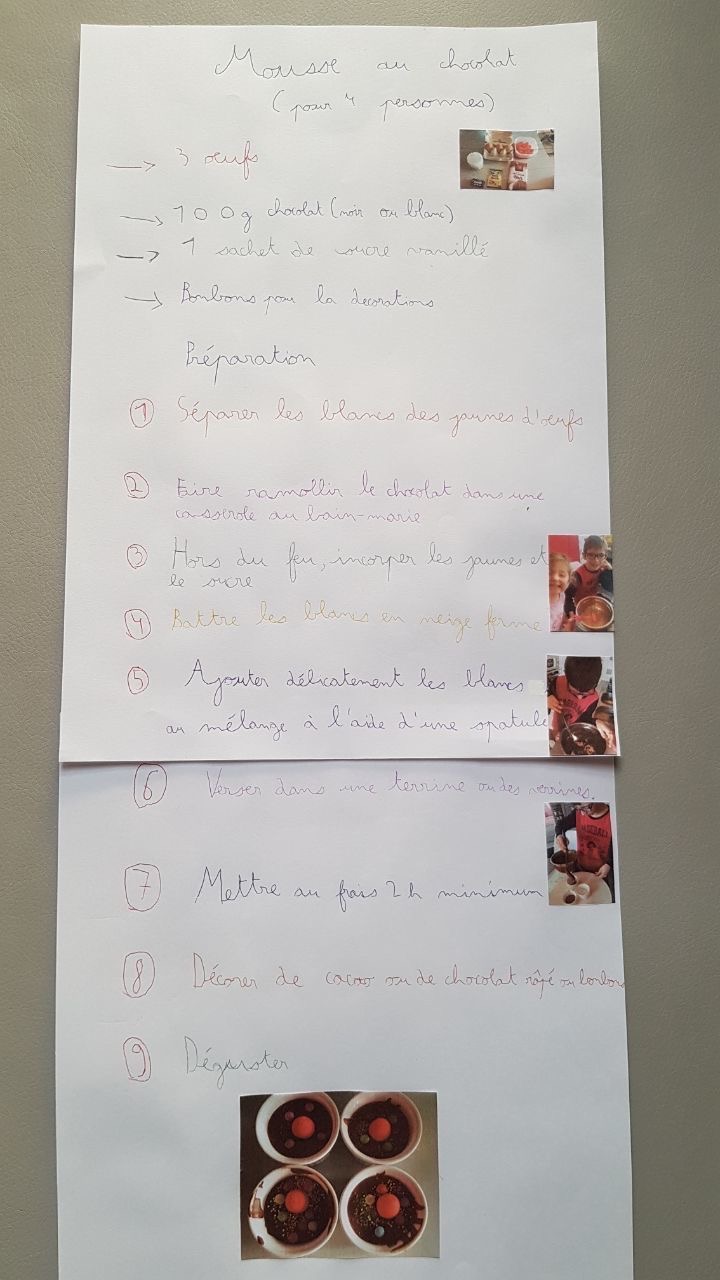 Mousse au chocolat
(pour 4 personnes)
→ 3 œufs
→ 100g chocolat (noir ou blanc)
→ 1 sachet de sucre vanillé
→ Bonbons pour la decorations
Préparation
1 Séparer les blancs des jaunes d'œufs
2 Faire ramollir le chocolat dans une
casserole au bain-marie
3 Hors du feu, incorper les jaunes et
le sucre
4 Battre les blancs en neige ferme
5 Ajouter délicatement les blancs
au mélange à l'aide d'une spatule
6 Verser dans une terrine ou des verrines.
7 Mettre au frais 2h minimum
8 Décorer de cacao ou de chocolat râpé ou bonbons
9 Déguster